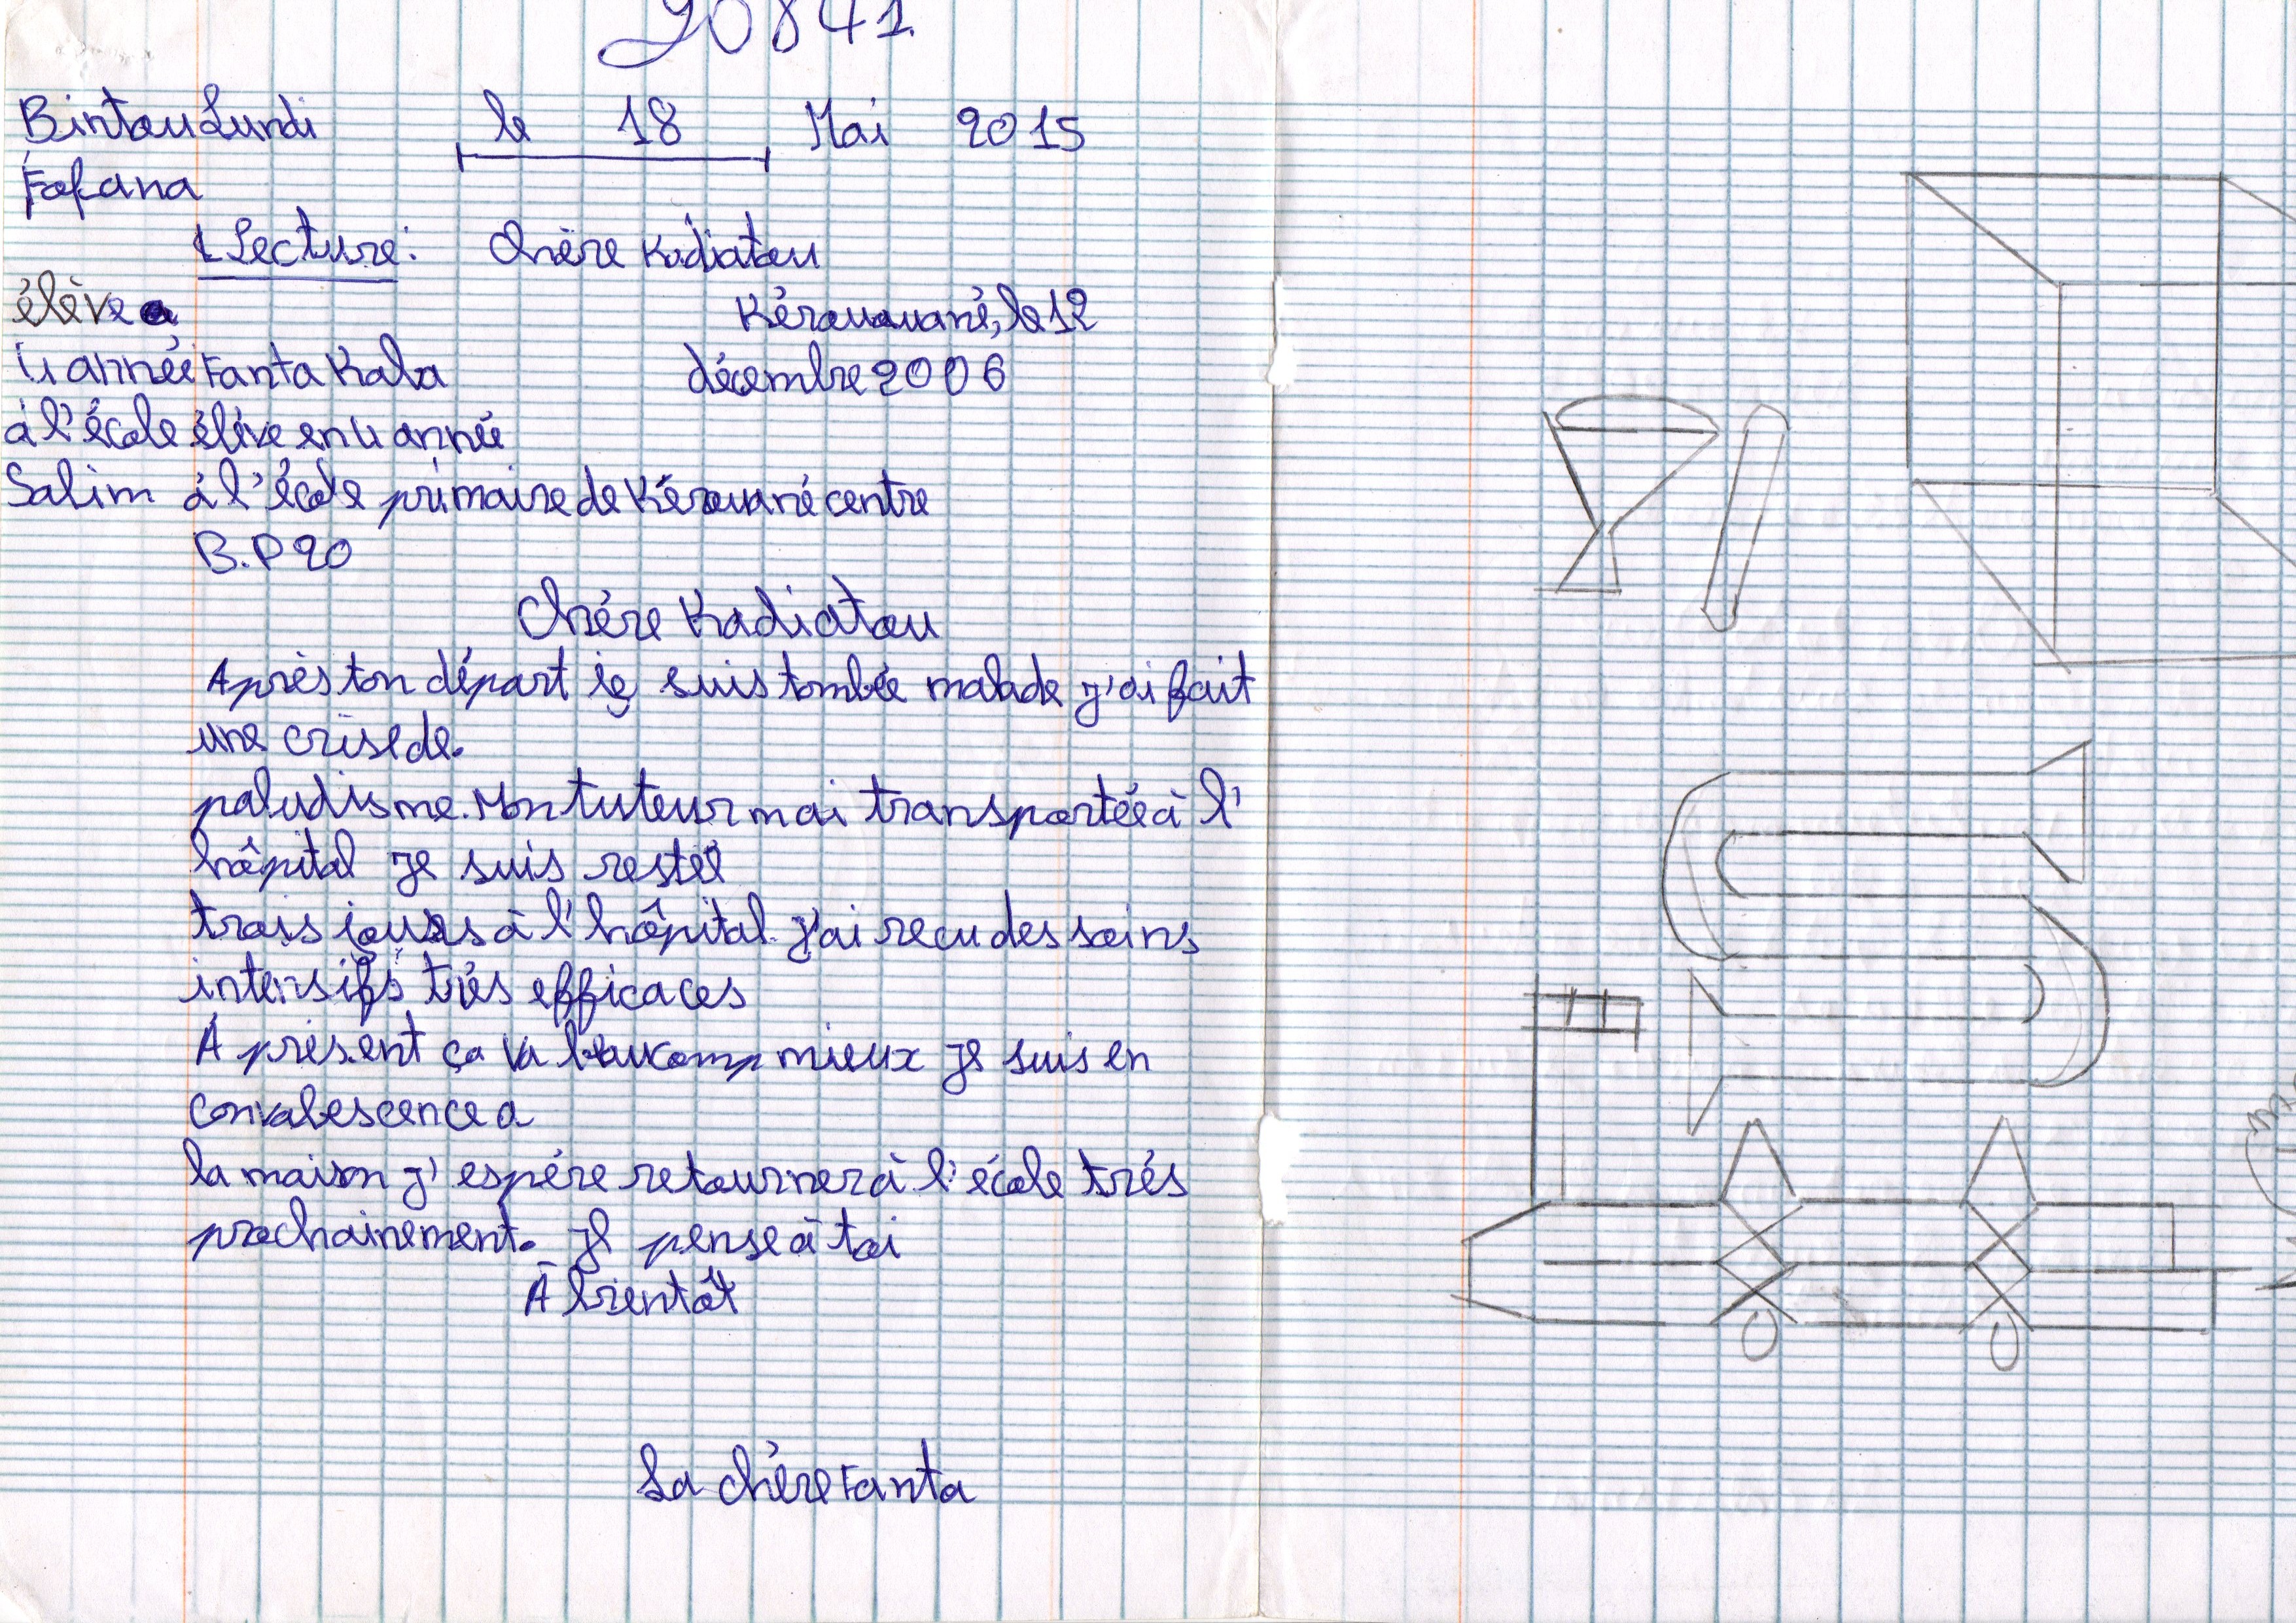 20841
Bintou Lundi le 18 Mai 2015
Fofana
1 Lecture: Chère Kadiatou
élève
Kérouauané, le 12
4 année Fanta Kaba décembre 2006
à l'école élève en 4 année
Salim à l'école primaire de Kérouané centre
B.P 20
Chére Kadiatou
Après ton départ je suis tombée malade j'ai fait
une crise de.
paludisme. Mon tuteur mai transportéé à l'
hôpital je suis resteé
trois jours à l'hôpital. J'ai recu des soins
intensifs trés efficaces
À présent ça va beaucomp mieux je suis en
convalescence a
la maison j'espére retourner à l'école trés
prochainement. Je pense à toi
À bientôt
La chére Fanta